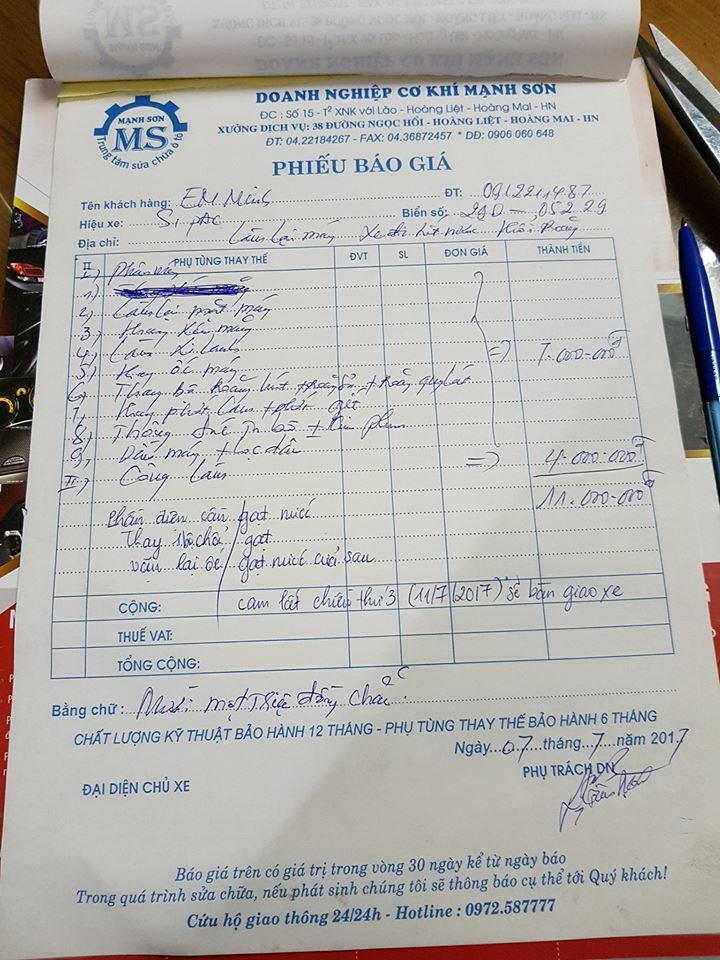 DOANH NGHIỆP CƠ KHÍ MẠNH SƠN
MẠNH SƠN
MS
Trung tâm sửa chữa ô tô
ĐC : Số 15 - T² XNK với Lào - Hoàng Liệt - Hoàng Mai - HN
XƯỞNG DỊCH VỤ: 38 ĐƯỜNG NGỌC HỒI - HOÀNG LIỆT - HOÀNG MAI - HN
ĐT: 04.22184267 - FAX: 04.36872457 * DĐ: 0906 060 648
PHIẾU BÁO GIÁ
Tên khách hàng: EM Minh ĐT: 0912211487
Hiệu xe: Biển số: 29D - 052.29
Địa chỉ: Làm lại máy xe
PHỤ TÙNG THAY THẾ ĐVT SL ĐƠN GIÁ THÀNH TIỀN
I) Phần máy
1)
2) Làm lại mặt máy
3)
4) Làm xi lanh
5) Thay ốc máy
6) Thay bộ
7) Thay phớt
8) Thông
9) Dầu máy + lọc dầu
=> 7.000.000đ
II) Công làm => 4.000.000đ
11.000.000đ
Phần điện cần gạt nước
Thay 1 bộ chổi gạt
vặn lại ốc gạt nước cửa sau
CỘNG: cam kết chiều thứ 3 (11/7/2017) sẽ bàn giao xe
THUẾ VAT:
TỔNG CỘNG:
Bằng chữ : Mười một triệu đồng chẵn
CHẤT LƯỢNG KỸ THUẬT BẢO HÀNH 12 THÁNG - PHỤ TÙNG THAY THẾ BẢO HÀNH 6 THÁNG
Ngày 07 tháng 7 năm 2017
ĐẠI DIỆN CHỦ XE PHỤ TRÁCH DN
Báo giá trên có giá trị trong vòng 30 ngày kể từ ngày báo
Trong quá trình sửa chữa, nếu phát sinh chúng tôi sẽ thông báo cụ thể tới Quý khách!
Cứu hộ giao thông 24/24h - Hotline : 0972.587777